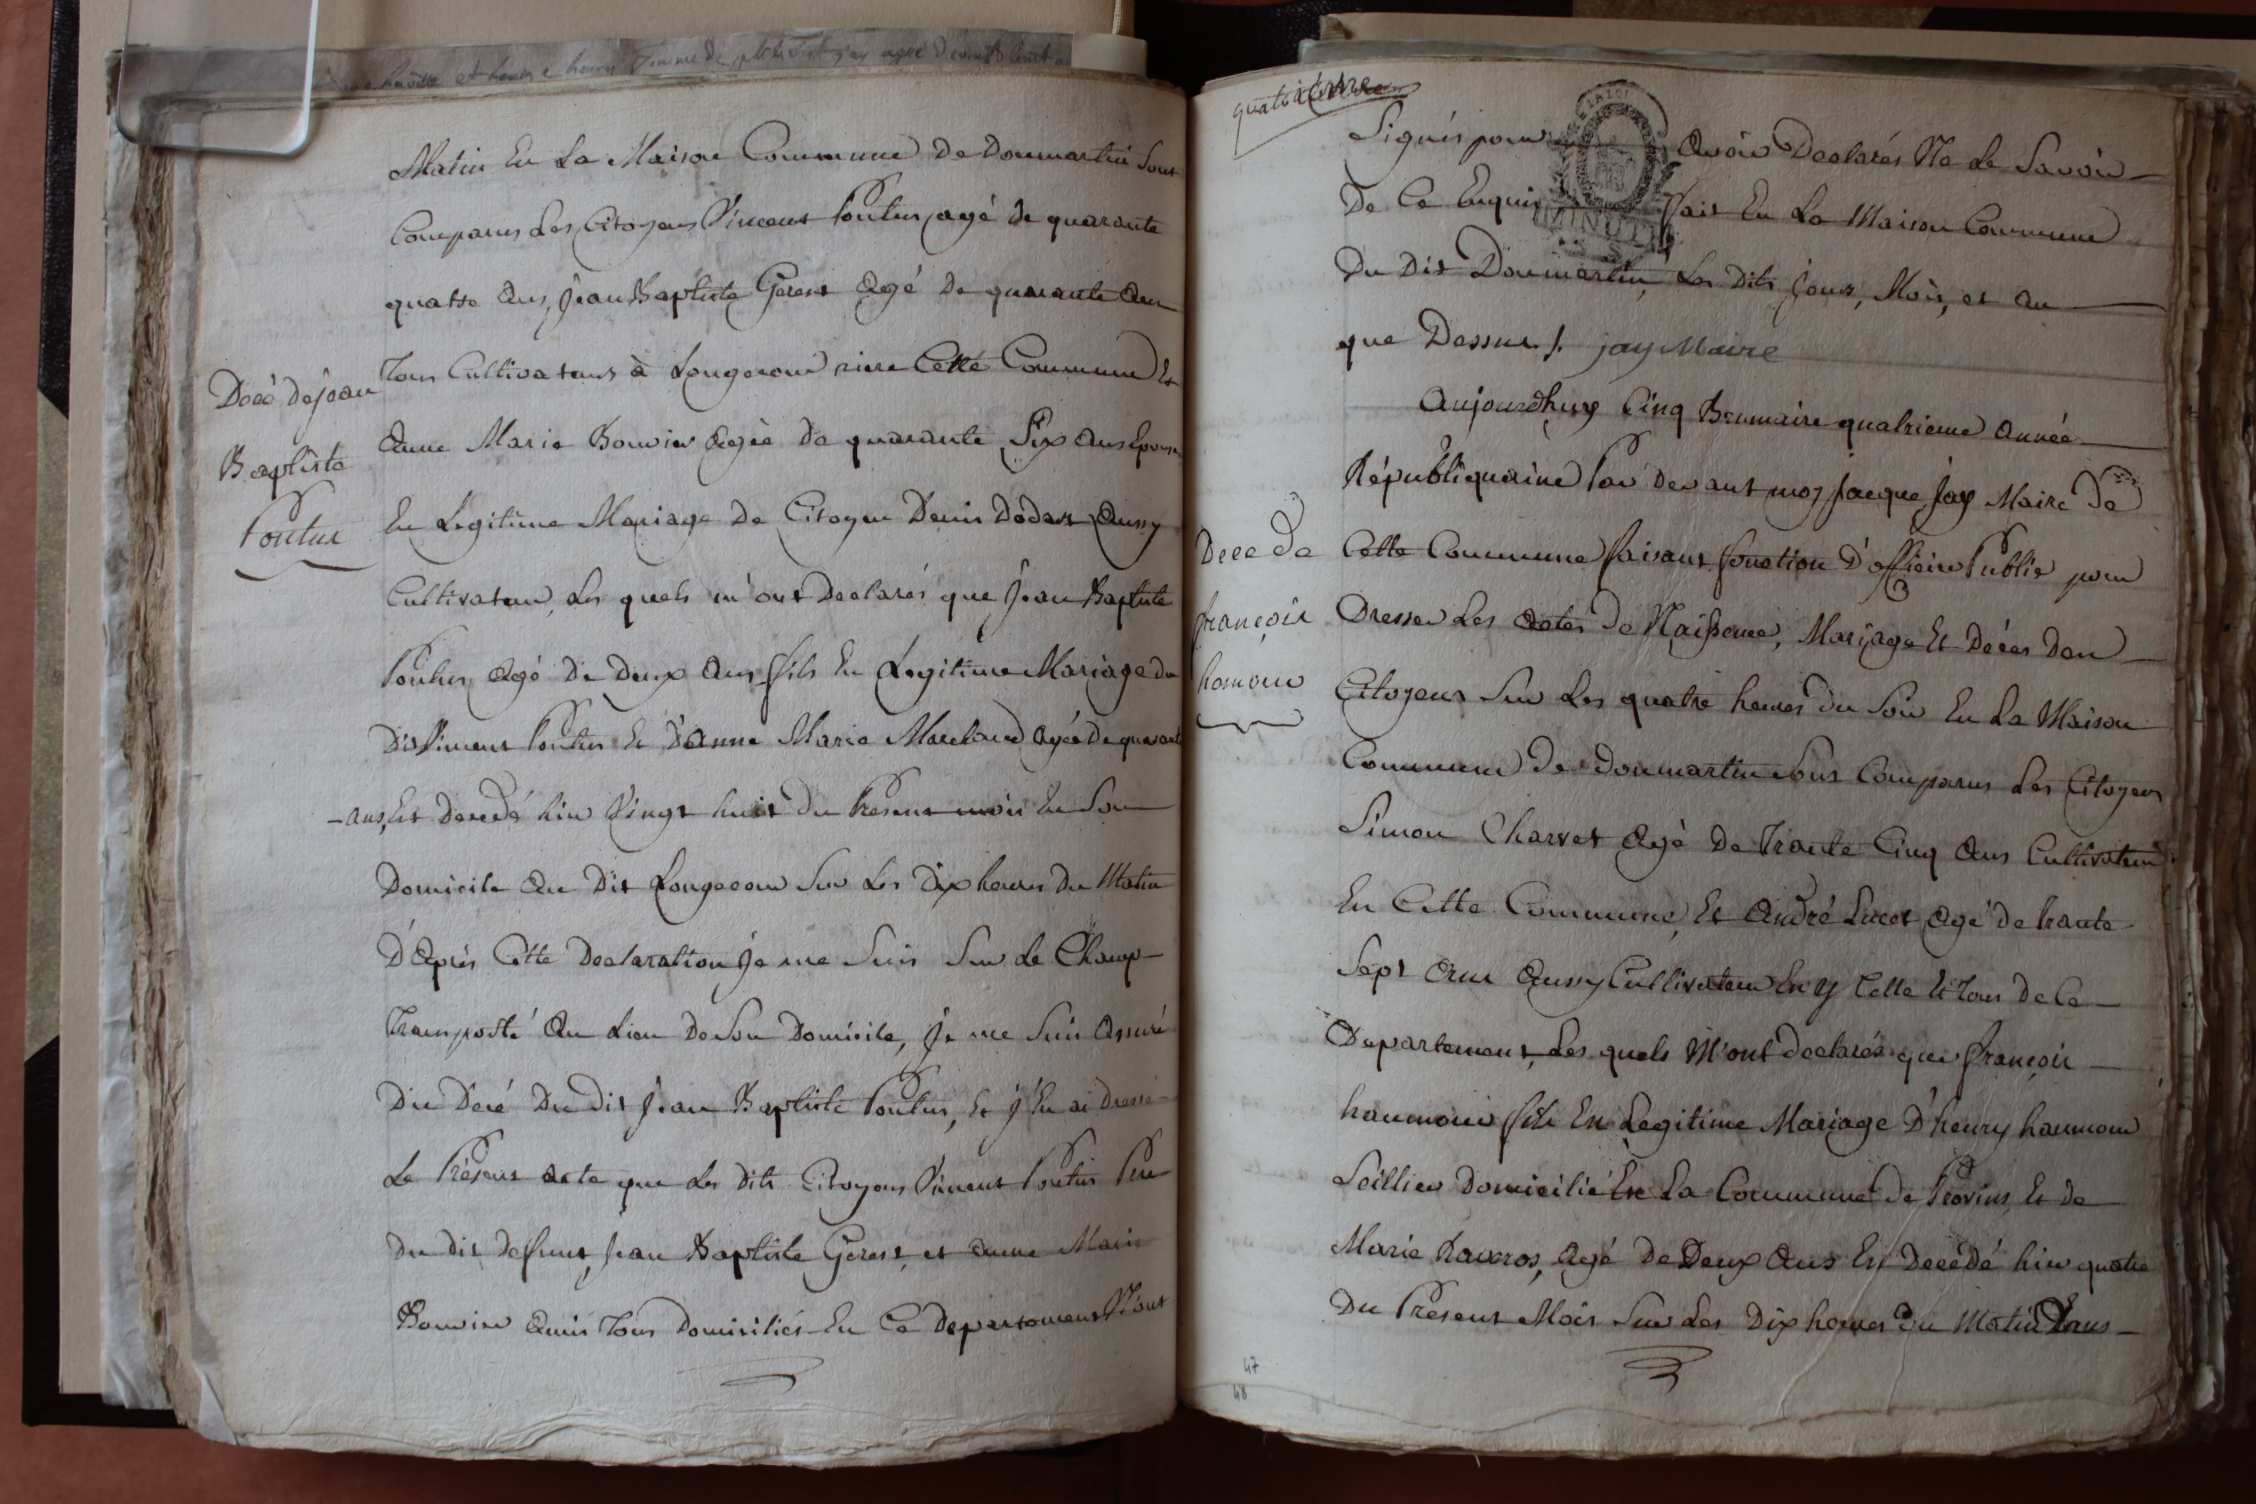 Matin En La Maison Commune De Donmartin Sont
Comparus Les Citoyens Vincent Poutus agé de quarante
quatre ans, Jean Baptiste Gerest Agé De quarante Ans
Tous Cultivateurs à Longecour riere Cette Commune Et
Anne Marie Bouvier Agée De quarante Six Ans Epouse
En Legitime Mariage De Citoyen Denis Aussy
Cultivateur, Les quels m'ont Declarés que Jean Baptiste
Poutus Agé De Deux Ans fils En Legitime Mariage du
Dit Vincent Poutus Et D'Anne Marie Agée De quarante
- ans, Est Decedé hier Vingt huit Du Présent mois En Son
Domicile Au Dit Longecour Sur Les Dix heures Du Matin
D'Après Cette Declaration Je me Suis Sur Le Champ
Transporté Au Lieu De Son Domicile, Je me Suis Assuré
Du Décé Du Dit Jean Baptiste Poutus, Et J'En ai Dressé
Le Présent Acte que Les Dits Citoyens Vincent Poutus Pere
Du Dit Defunt, Jean Baptiste Gerest, et Anne Marie
Bouvier Amis Tous Domiciliés En Ce Departement N'ont
Décé De Jean
Baptiste
Poutus
Signés pour Avoir Declarés Ne Le Savoir
De Ce Enquis Fait En La Maison Commune
Du Dit Donmartin, Les Dits Jour, Mois, et An
que Dessus /. jay Maire
Aujourdhuy Cinq Brumaire quatrieme Année
Républiquaine Par Devant moy Jacque Jay Maire De
Cette Commune faisant fonction D'officier Public pour
Dresser Les Actes De Naissence, Mariage Et Décés Des
Citoyens Sur Les quatre heures Du Soir En La Maison
Commune De Donmartin Sont Comparus Les Citoyens
Simon Charvet Agé De Trante Cinq Ans Cultivateur
En Cette Commune, Et André Agé De trante
Sept Ans Aussy Cultivateur En Cette Et Tous De Ce
Departement, Les quels M'ont declarés que François
haumour fils En Legitime Mariage D'henry haumour
Seillier Domicilié En La Commune De Provins, Et De
Marie Agé De Deux Ans Est Decedé hier quatre
Du Présent Mois Sur Les Dix heures Du Matin Dans
Decé De
françois
homour
47
48